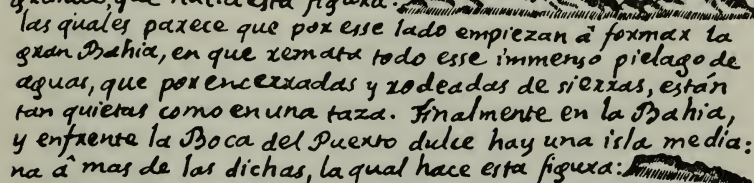 grande, que hacia esta figura:
las quales parece que por esse lado empiezan â formar la
gran Bahia, en que remata todo esse immenso pielago de
aguas, que por encerradas y rodeadas de sierras, están
tan quietas como en una taza. Finalmente en la Bahia,
y enfrente la Boca del Puerto dulce hay una isla media:
na â mas de las dichas, la qual hace esta figura: